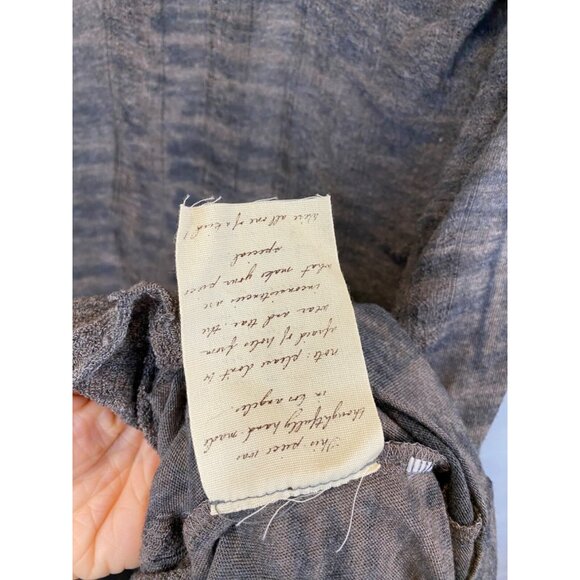 This piece was
thoughtfully hand made
in Los angeles.
note: please dont be
afraid of holes from
wear and tear the
inconsistencies are
what makes your piece
special
We're all one of a kind!